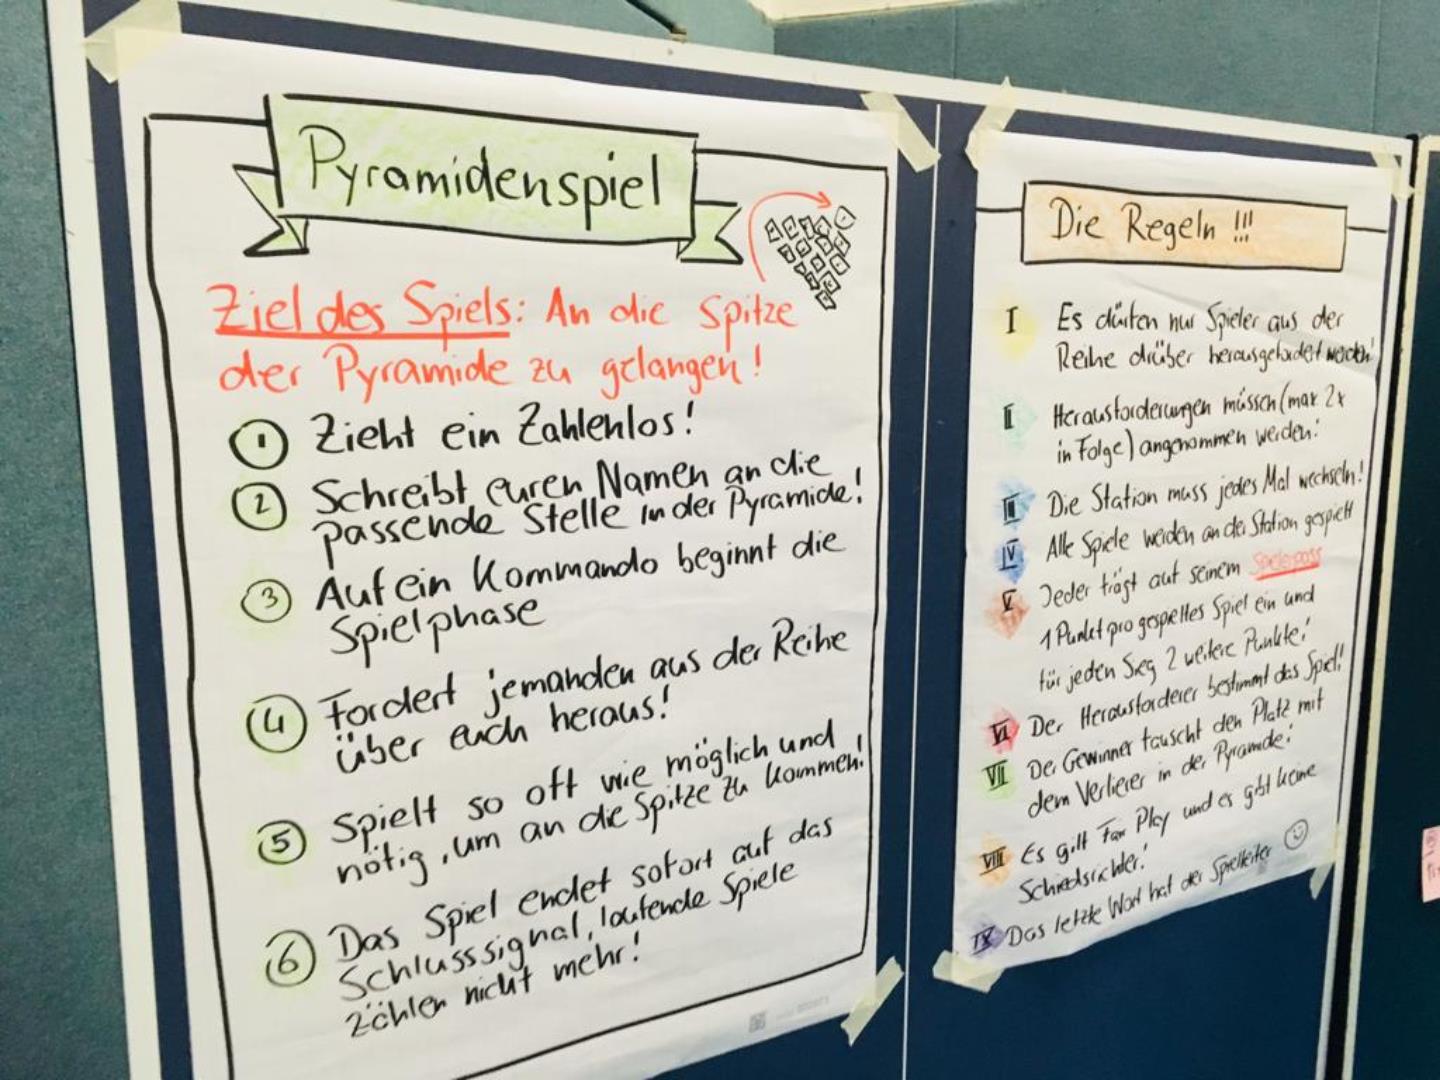 Pyramidenspiel
Ziel des Spiels: An die Spitze
der Pyramide zu gelangen!
1 Zieht ein Zahlenlos!
2 Schreibt euren Namen an die
passende Stelle in der Pyramide!
3 Auf ein Kommando beginnt die
Spielphase
4 Fordert jemanden aus der Reihe
über euch heraus!
5 Spielt so oft wie möglich und
nötig, um an die Spitze zu kommen!
6 Das Spiel endet sofort auf das
Schlusssignal, laufende Spiele
zählen nicht mehr!
Die Regeln !!!
I Es dürfen nur Spieler aus der
Reihe drüber herausgefordert werden!
II Herausforderungen müssen (max 2x
in Folge) angenommen werden!
III Die Station muss jedes Mal wechseln!
IV Alle Spiele werden an der Station gespielt
V Jeder trägt auf seinem Spielepass
1 Punkt pro gespieltes Spiel ein und
für jeden Sieg 2 weitere Punkte!
VI Der Herausforderer bestimmt das Spiel!
VII Der Gewinner tauscht den Platz mit
dem Verlierer in der Pyramide!
VIII Es gilt Fair Play und es gibt keine
Schiedsrichter!
IX Das letzte Wort hat der Spielleiter